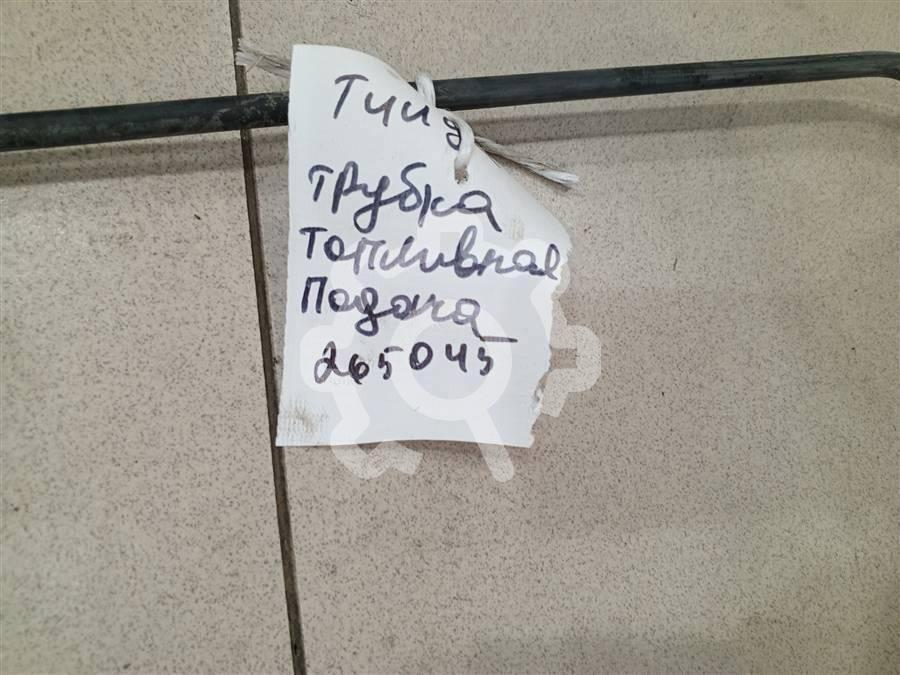 Тиид
Трубка
Топливная
Подача
265045